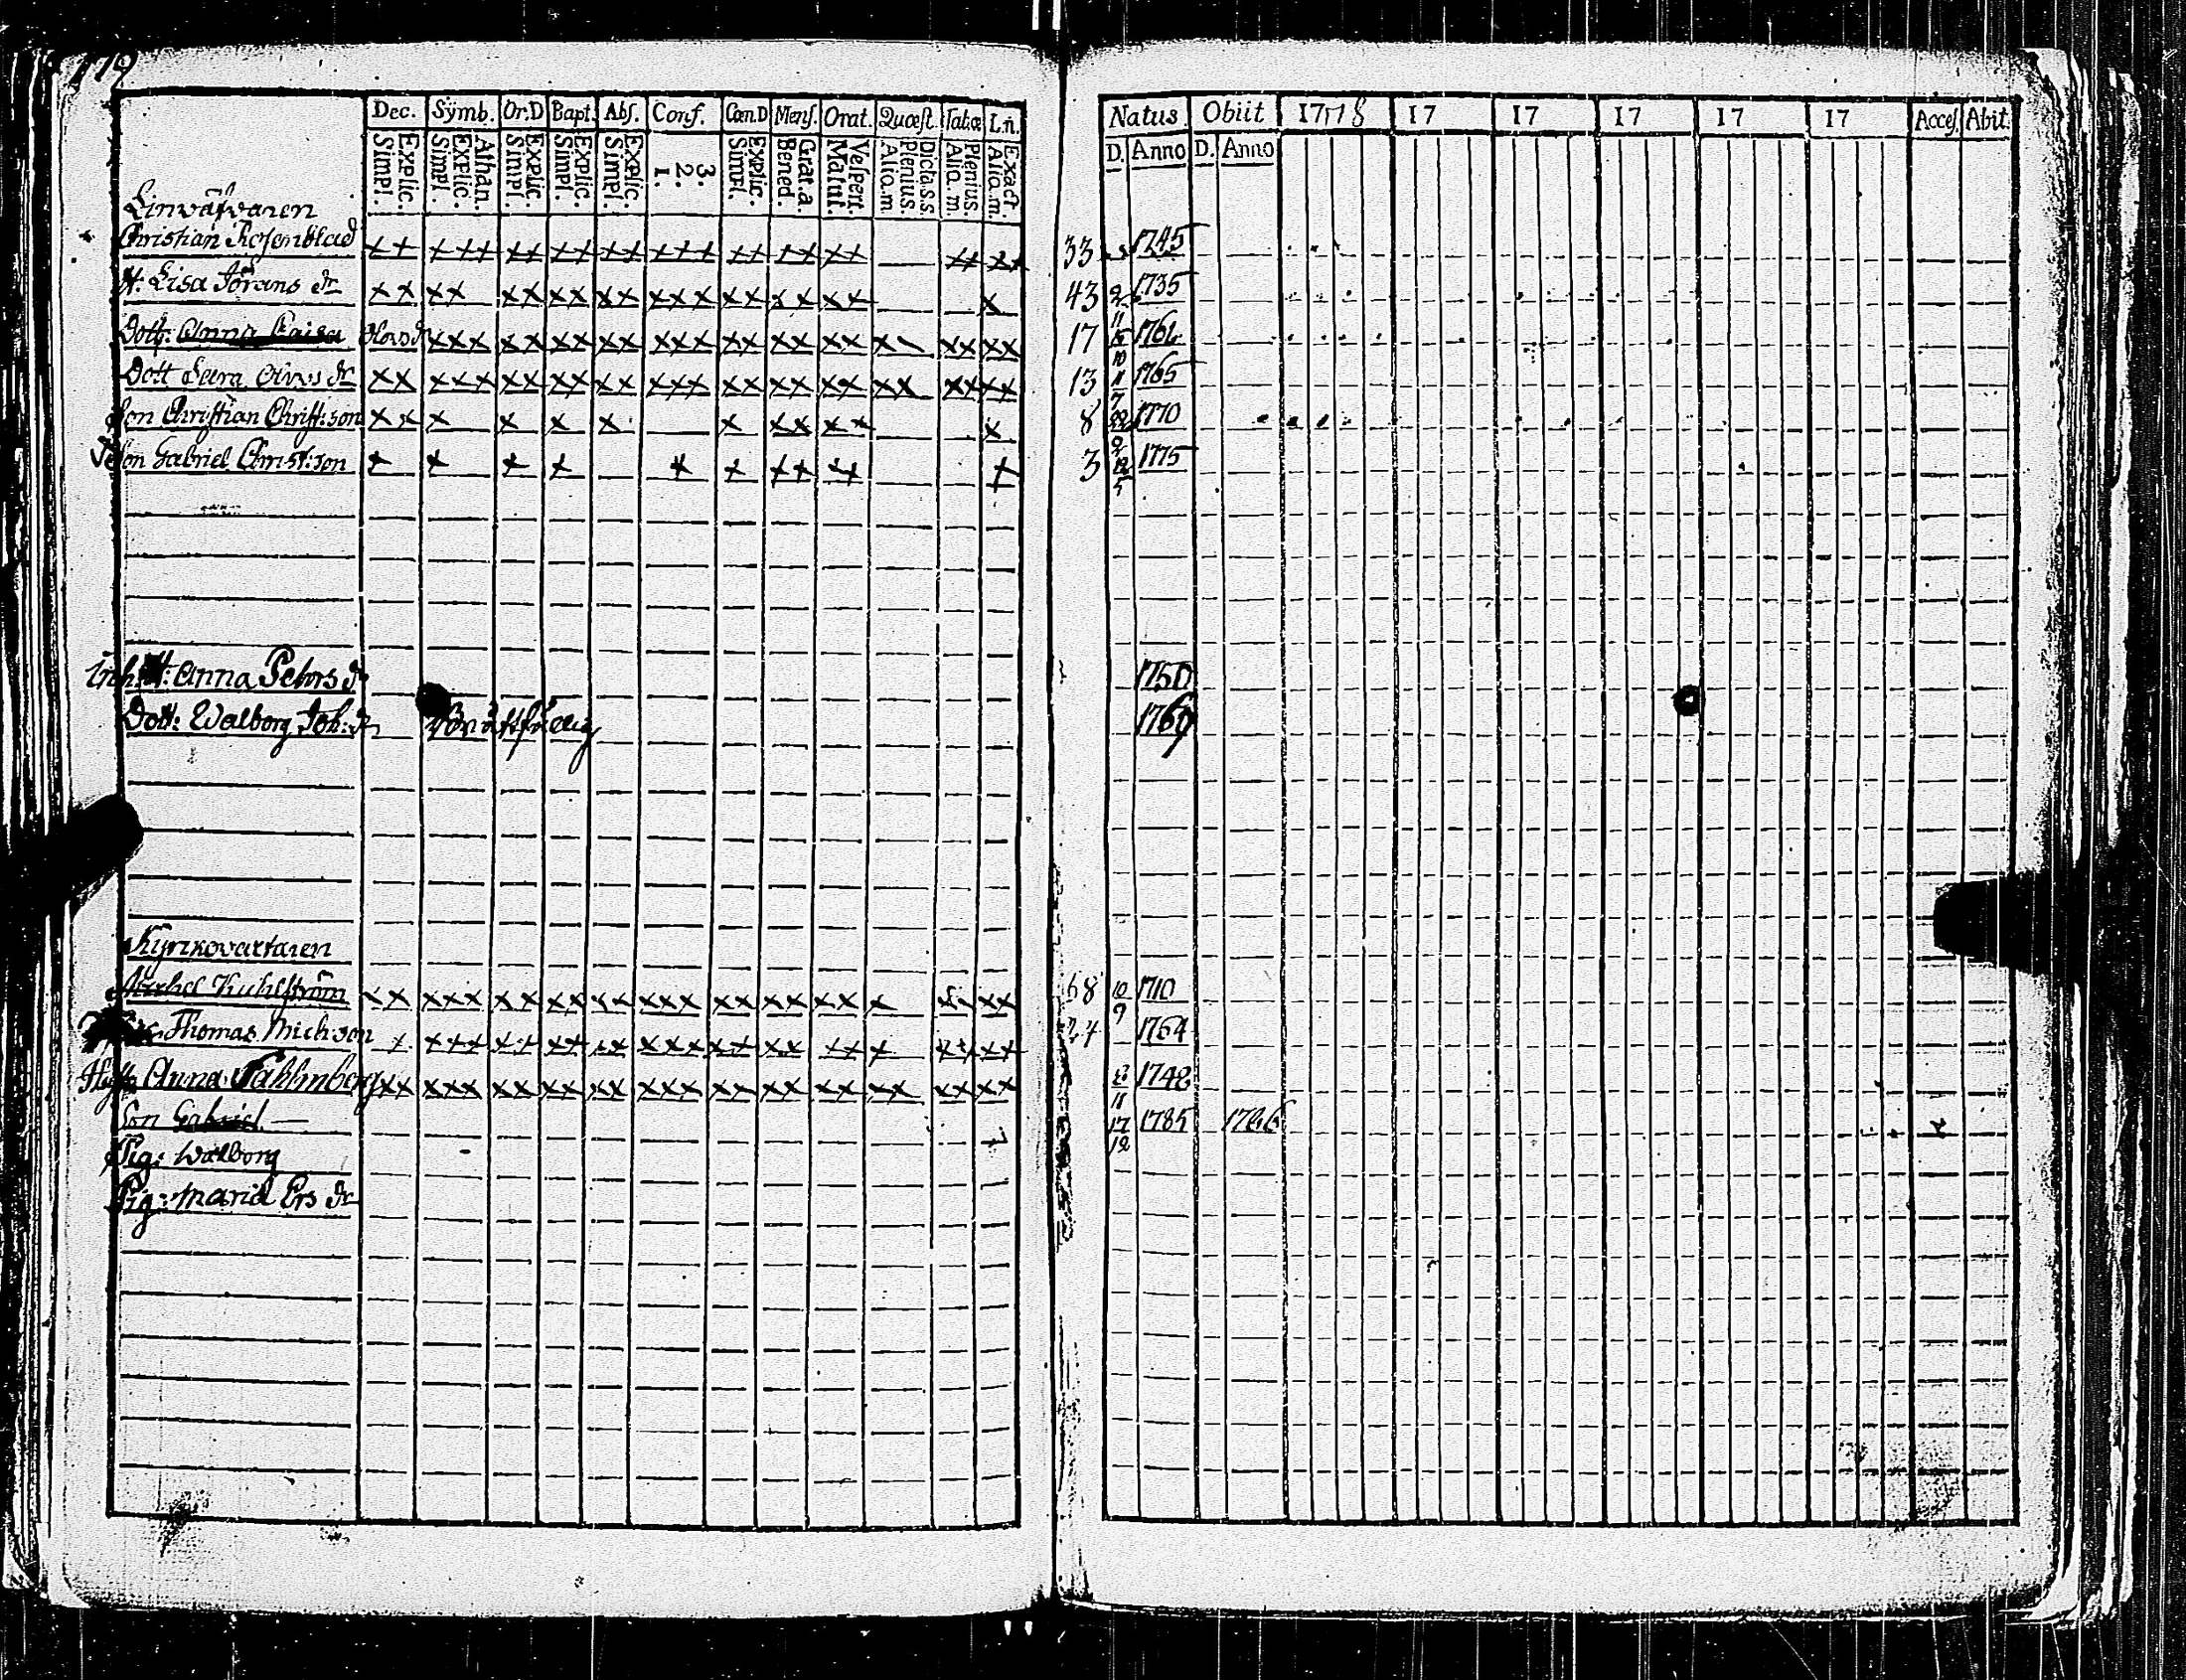 179
Dec. Symb. Or:D Bapt. Abs. Conf. Cœn.D Mens. Orat. Quæst. Tab:œ L.n.
Explic. Simpl. Athan. Explic. Simpl. Explic. Simpl. Explic. Simpl. Explic. Simpl. 3. 2. 1. Explic. Simpl. Grat.a. Bened. Vespert. Matut. Dicta.s.s. Plenius. Aliq.m Plenius. Aliq.m Exact. Aliq.m.
Natus. Obiit 1778 17 17 17 17 17 Acces. Abit.
D. Anno D. Anno
Linväfvaren
Christian Rosenblad ×× ××× ×× ×× ×× ××× ×× ×× ×× ×× ×× 33 1745
H: Lisa Jörans dr ×× ×× ×× ×× ×× ××× ×× ×× ×× × 43 1735
Dott: Anna Caisa Olovsdr ××× ×× ×× ×× ××× ×× ×× ×× × ×× ×× 17 11/15 176
Dott ×× ××× ×× ×× ×× ××× ×× ×× ×× ×× ×× ×× 13 10/11 1765
Son Christian Christ:son ×× × × × × × ×× ×× × 8 7/22 1770
Son Gabriel Christ:son × × × × × × ×× ×× × 3 12/5 1775
H: Anna Pehrs dr 1750
Dott: Walborg Joh: dr 1769
Kyrkovaktaren
Michel Kuhlström ×× ××× ×× ×× ×× ××× ×× ×× ×× × ×× 68 10/9 1710
Thomas Mich:son × ××× ×× ×× ×× ××× ×× ×× ×× × ×× ×× 24 1754
Anna ×× ××× ×× ×× ×× ××× ×× ×× ×× ×× ×× ×× 1748
Son Gabriel 17/12 1785 1786
Pig: Walborg
Pig: Maria Ers dr